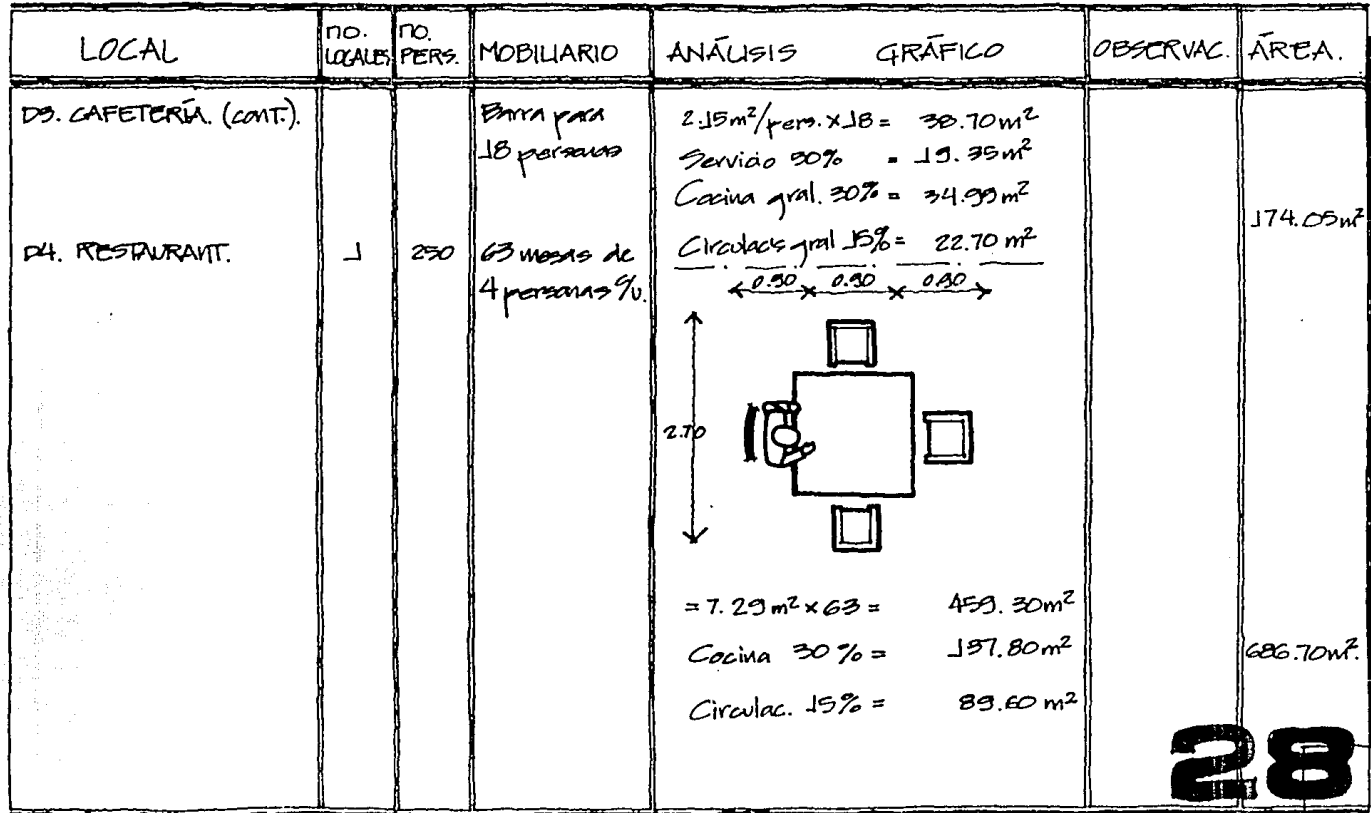 LOCAL
no. LOCALES
no. PERS.
MOBILIARIO
ANÁLISIS GRÁFICO
OBSERVAC.
ÁREA.
D3. CAFETERÍA. (cont.).
Barra para
18 personas
2.15m²/pers. x 18 = 38.70 m²
Servicio 50% = 19.35 m²
Cocina gral. 30% = 34.99 m²
Circulacs gral 15% = 22.70 m²
174.05m²
D4. RESTAURANT.
1
250
63 mesas de
4 personas c/u.
0.90 x 0.90 x 0.90
2.70
= 7.29 m² x 63 = 459.30m²
Cocina 30% = 137.80m²
Circulac. 15% = 89.60 m²
686.70m².
28